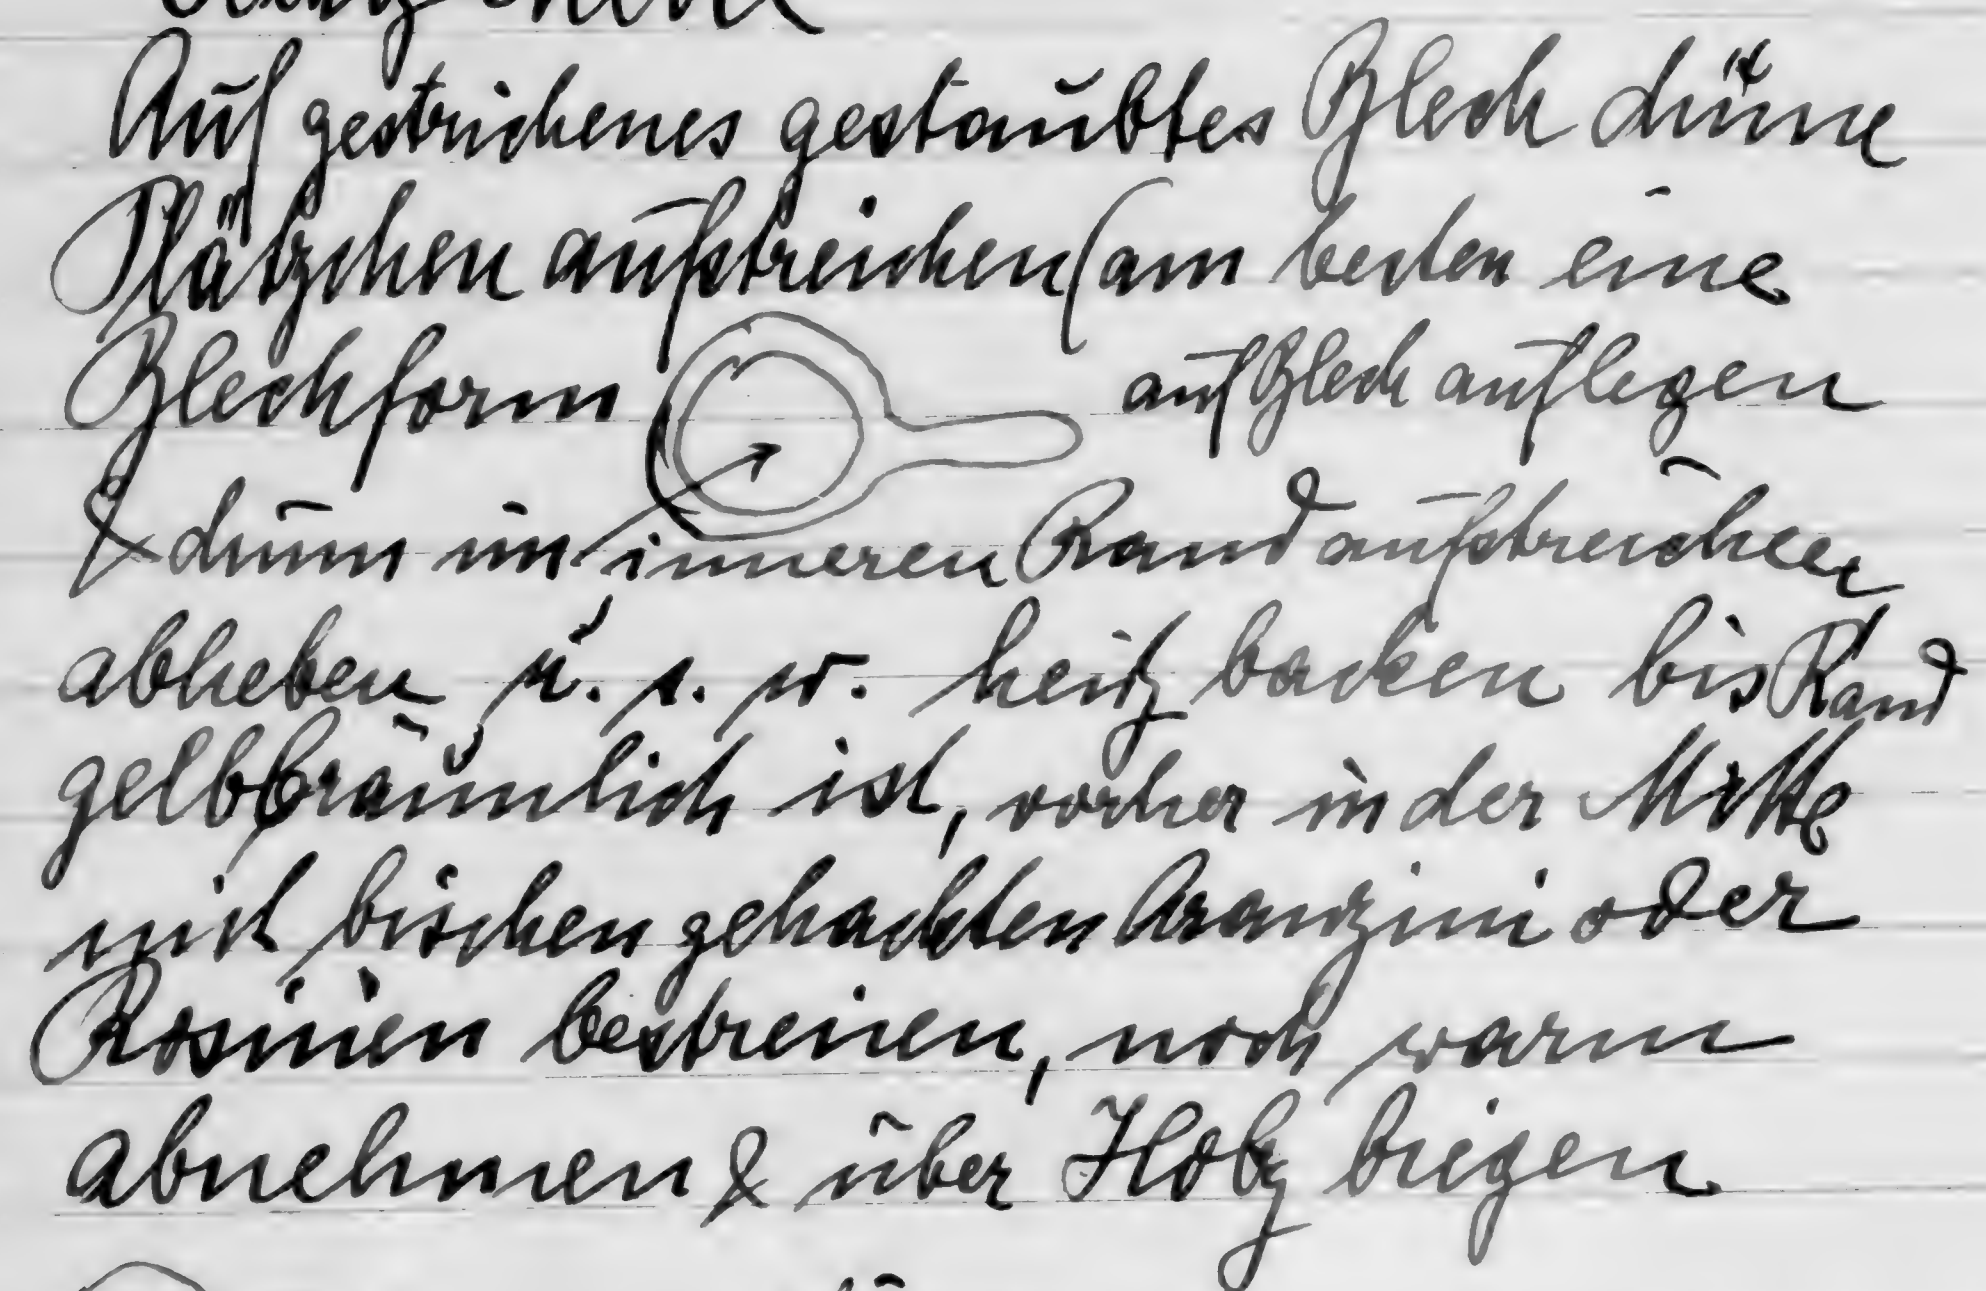 Auf gestrichenes gestaubtes Blech dünne
Plätzchen aufstreichen (am besten eine
Blechform auf Blech auflegen
& dünn im inneren Rand aufstreichen
abheben u. s. w. heiß backen bis Rand
gelbbräunlich ist, vorher in der Mitte
mit bischen gehackten Aranzini oder
Rosinen bestreuen, noch warm
abnehmen & über Holz biegen